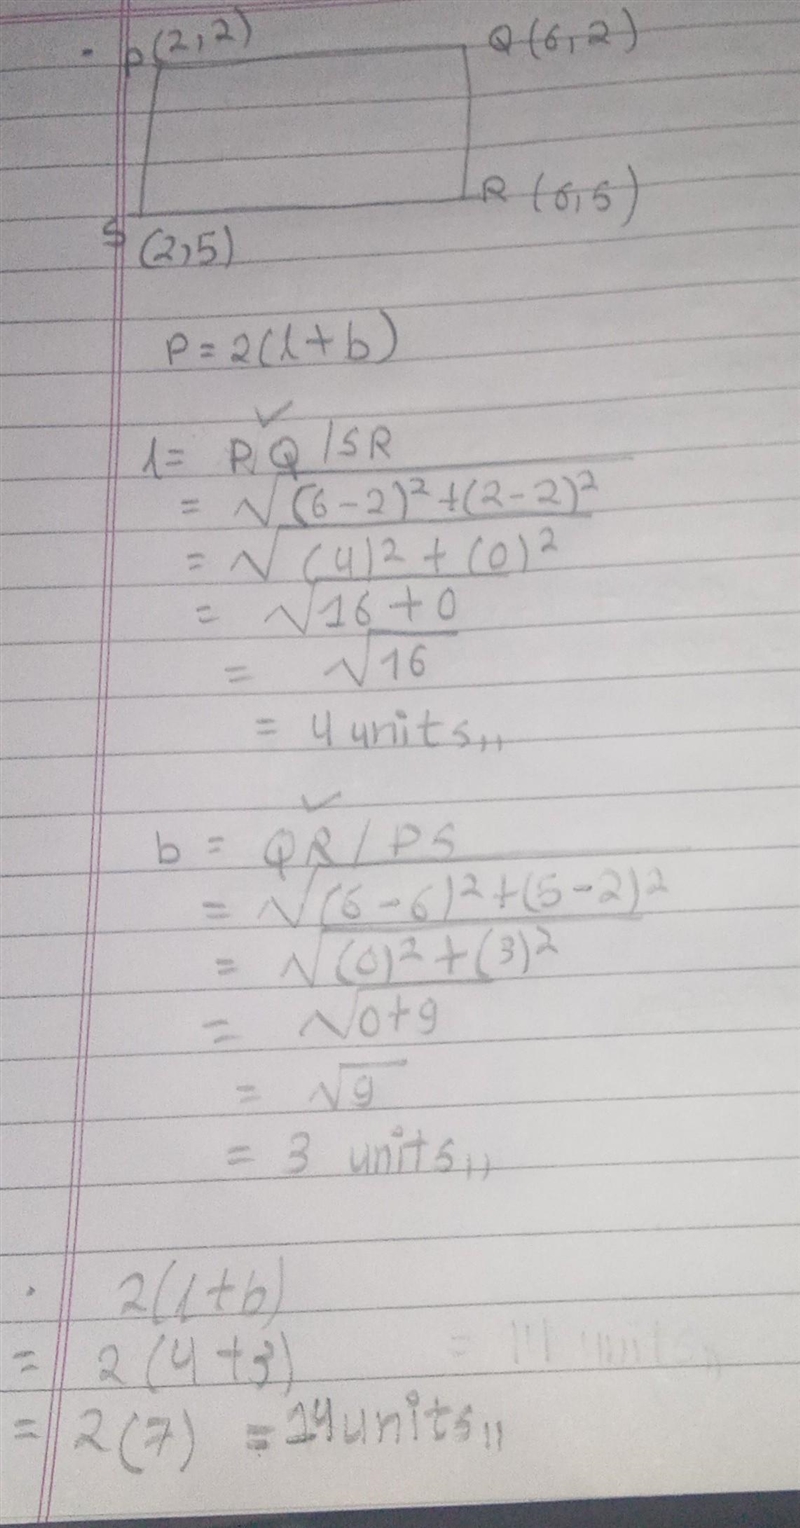 P(2,2) Q(6,2)
S (2,5) R (6,5)
P = 2(l+b)
l = PQ/SR
= √(6-2)²+(2-2)²
= √(4)²+(0)²
= √16+0
= √16
= 4 units,,
b = QR/PS
= √(6-6)²+(5-2)²
= √(0)²+(3)²
= √0+9
= √9
= 3 units,,
2(l+b)
= 2(4+3) = 14 units,,
= 2(7) = 14 units,,